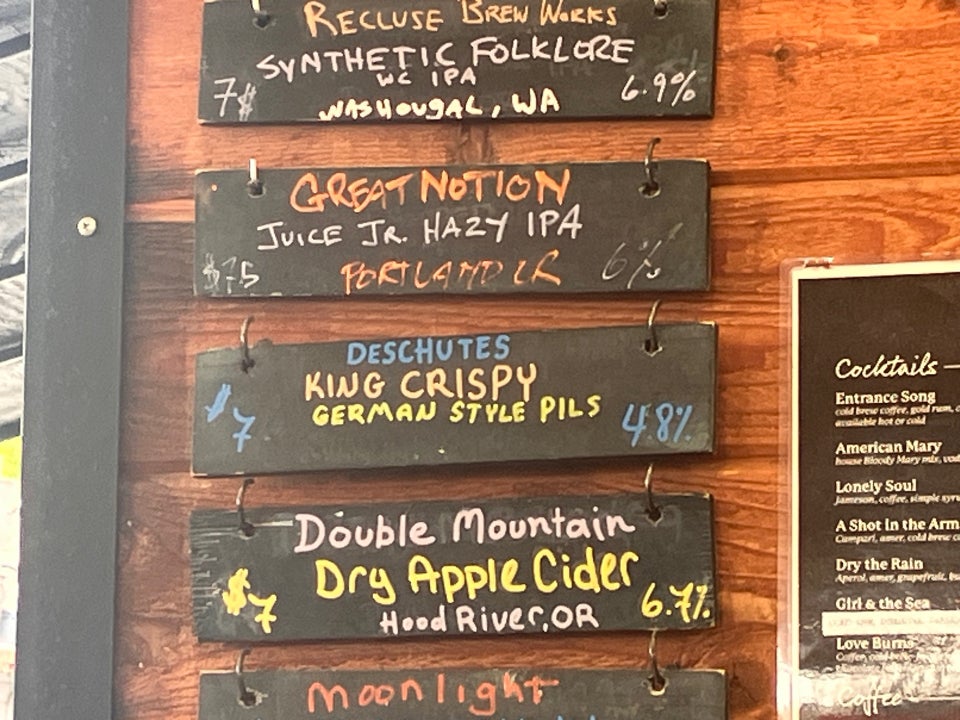 RECLUSE BREW WORKS
SYNTHETIC FOLKLORE
WC IPA
7$ 6.9%
WASHOUGAL, WA
GREAT NOTION
JUICE JR. HAZY IPA
6%
PORTLAND OR
DESCHUTES
KING CRISPY
GERMAN STYLE PILS
$7 4.8%
Double Mountain
Dry Apple Cider
$7 6.7%
Hood River, OR
moonlight
Cocktails
Entrance Song
cold brew coffee, gold rum,
available hot or cold
American Mary
house Bloody Mary mix,
Lonely Soul
jameson, coffee, simple
A Shot in the Arm
Campari, amer, cold brew
Dry the Rain
Aperol, amer, grapefruit,
Girl & the Sea
Love Burns
Coffee